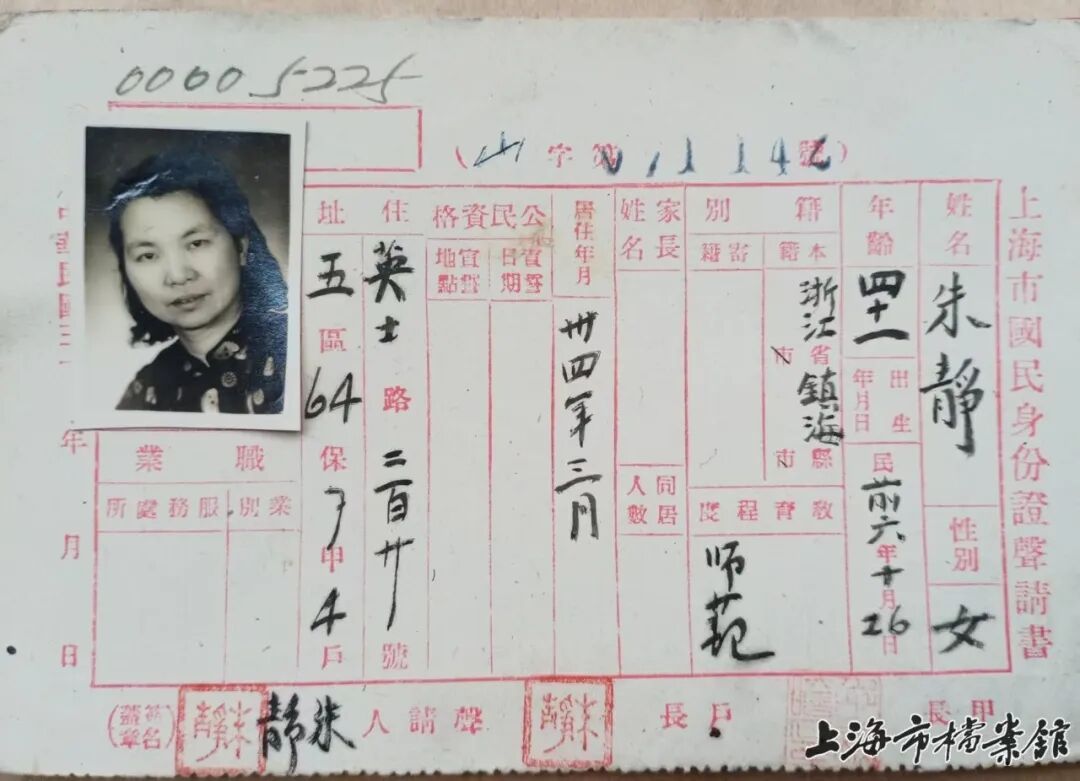 00005225
(山字第01142號)
上海市國民身份證聲請書
姓名
朱靜
性別
女
年齡
四十一
出生年月日
民前六年十月26日
籍別
本籍
浙江省市鎮海縣市
寄籍
教育程度
师范
家長姓名
同居人數
居住年月
卅四年三月
公民資格
宣誓日期
宣誓地點
住址
英士路二百廿號
五區64保7甲4戶
職業
業別
服務處所
年月日
甲長
戶長
聲請人
朱靜
(簽名蓋章)
朱靜
朱靜
上海市檔案館